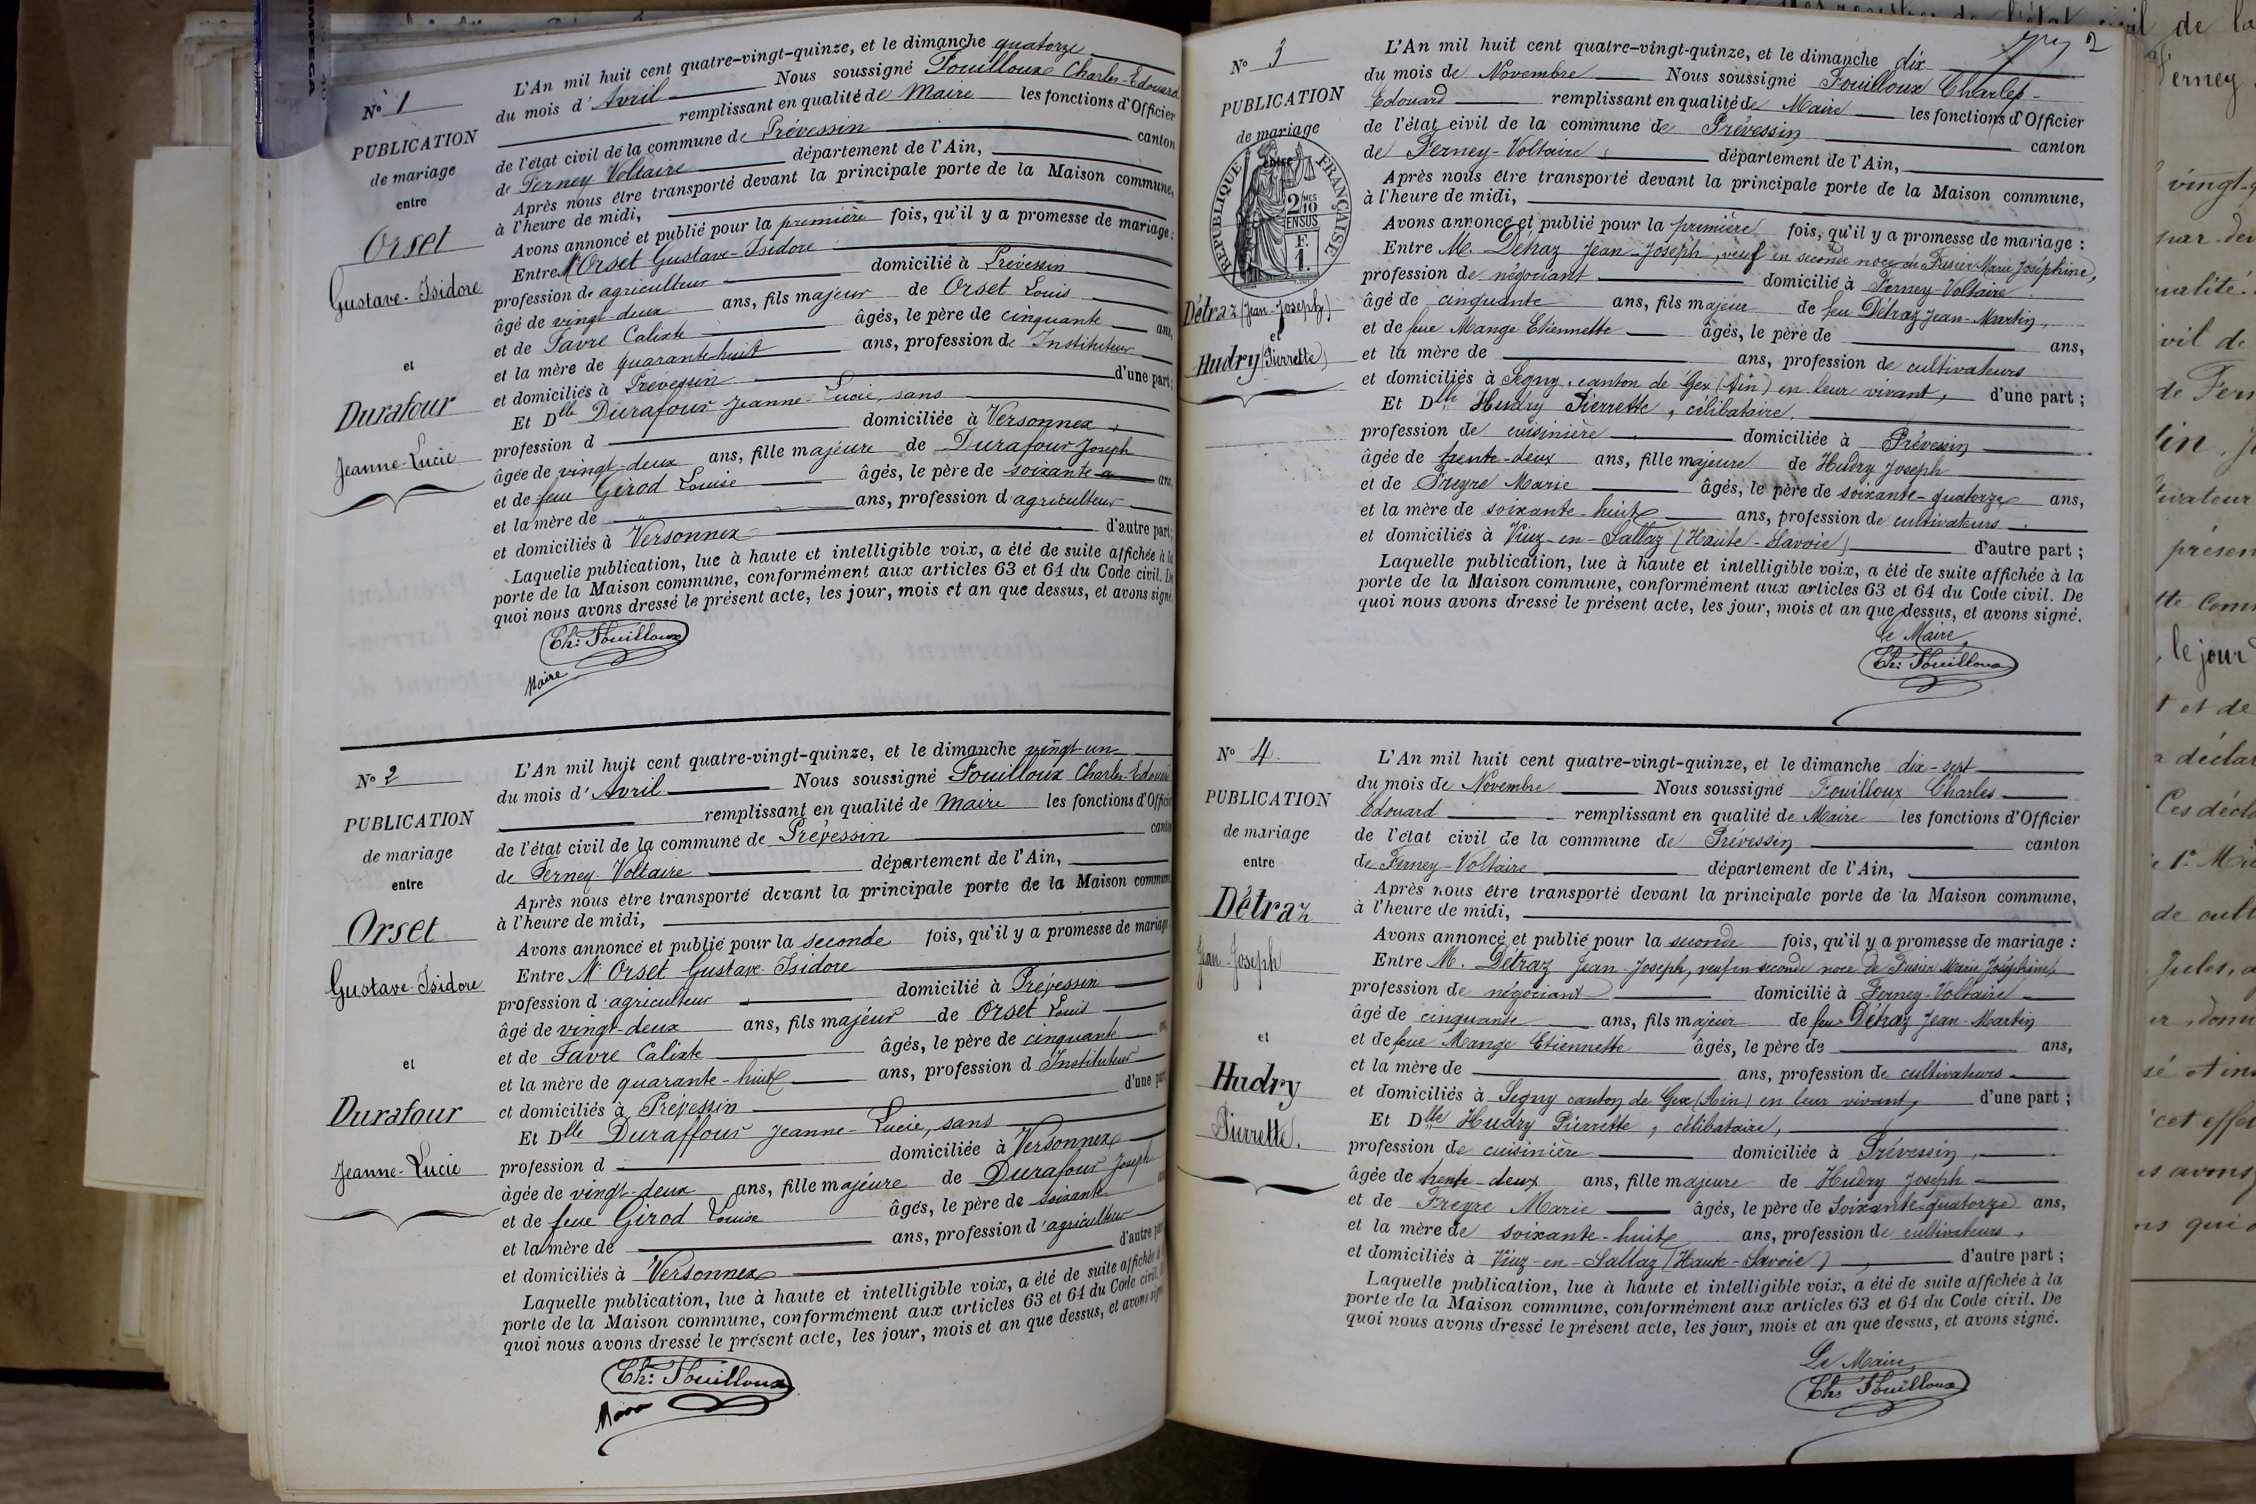 IMPEGA
N° 1
PUBLICATION
de mariage
entre
Orset
Gustave-Isidore
et
Durafour
Jeanne-Lucie
L'An mil huit cent quatre-vingt-quinze, et le dimanche quatorze
du mois d'Avril Nous soussigné Fouilloux Charles-Edouard
remplissant en qualité de Maire les fonctions d'Officier
de l'état civil de la commune de Prévessin canton
de Ferney Voltaire département de l'Ain,
Après nous être transporté devant la principale porte de la Maison commune,
à l'heure de midi,
Avons annoncé et publié pour la première fois, qu'il y a promesse de mariage :
Entre Mr Orset Gustave-Isidore
profession d'agriculteur domicilié à Prévessin
âgé de vingt-deux ans, fils majeur de Orset Louis
et de Favre Calixte âgés, le père de cinquante ans,
et la mère de quarante-huit ans, profession d'Instituteur
et domiciliés à Prévessin d'une part ;
Et Dlle Durafour Jeanne-Lucie, sans
profession d domiciliée à Versonnex,
âgée de vingt-deux ans, fille majeure de Durafour Joseph
et de feue Girod Louise âgés, le père de soixante ans,
et la mère de ans, profession d'agriculteur
et domiciliés à Versonnex d'autre part ;
Laquelle publication, lue à haute et intelligible voix, a été de suite affichée à la
porte de la Maison commune, conformément aux articles 63 et 64 du Code civil. De
quoi nous avons dressé le présent acte, les jour, mois et an que dessus, et avons signé.
Ch: Fouilloux
Maire
N° 2
PUBLICATION
de mariage
entre
Orset
Gustave-Isidore
et
Durafour
Jeanne-Lucie
L'An mil huit cent quatre-vingt-quinze, et le dimanche vingt-un
du mois d'Avril Nous soussigné Fouilloux Charles-Edouard
remplissant en qualité de Maire les fonctions d'Officier
de l'état civil de la commune de Prévessin canton
de Ferney-Voltaire département de l'Ain,
Après nous être transporté devant la principale porte de la Maison commune,
à l'heure de midi,
Avons annoncé et publié pour la seconde fois, qu'il y a promesse de mariage
Entre Mr Orset Gustave-Isidore
profession d'agriculteur domicilié à Prévessin
âgé de vingt-deux ans, fils majeur de Orset Louis
et de Favre Calixte âgés, le père de cinquante ans,
et la mère de quarante-huit ans, profession d Instituteur
et domiciliés à Prévessin d'une part
Et Dlle Duraffour Jeanne-Lucie, sans
profession d domiciliée à Versonnex
âgée de vingt-deux ans, fille majeure de Durafour Joseph
et de feue Girod Louise âgés, le père de soixante ans
et la mère de ans, profession d'agriculteur
et domiciliés à Versonnex d'autre part
Laquelle publication, lue à haute et intelligible voix, a été de suite affichée à
porte de la Maison commune, conformément aux articles 63 et 64 du Code civil.
quoi nous avons dressé le présent acte, les jour, mois et an que dessus, et avons signé
Ch: Fouilloux
Maire
2
N° 3
PUBLICATION
de mariage
entre
RÉPUBLIQUE FRANÇAISE
2/10 MES
EN SUS
1 F.
Détraz (Jean-Joseph)
et
Hudry (Pierrette)
L'An mil huit cent quatre-vingt-quinze, et le dimanche dix
du mois de Novembre Nous soussigné Fouilloux Charles-
Edouard remplissant en qualité de Maire les fonctions d'Officier
de l'état civil de la commune de Prévessin canton
de Ferney-Voltaire, département de l'Ain,
Après nous être transporté devant la principale porte de la Maison commune,
à l'heure de midi,
Avons annoncé et publié pour la première fois, qu'il y a promesse de mariage :
Entre M. Détraz Jean-Joseph, veuf en seconde noce de Fusier Marie Joséphine,
profession de négociant domicilié à Ferney-Voltaire
âgé de cinquante ans, fils majeur de feu Détraz Jean-Martin,
et de feue Mange Etiennette âgés, le père de ans,
et la mère de ans, profession de cultivateurs
et domiciliés à Segny, canton de Gex (Ain) en leur vivant, d'une part ;
Et Dlle Hudry Pierrette, célibataire.
profession de cuisinière domiciliée à Prévessin
âgée de trente-deux ans, fille majeure de Hudry Joseph
et de Freyre Marie âgés, le père de soixante-quatorze ans,
et la mère de soixante-huit ans, profession de cultivateurs
et domiciliés à Viuz-en-Sallaz (Haute-Savoie) d'autre part ;
Laquelle publication, lue à haute et intelligible voix, a été de suite affichée à la
porte de la Maison commune, conformément aux articles 63 et 64 du Code civil. De
quoi nous avons dressé le présent acte, les jour, mois et an que dessus, et avons signé.
Le Maire,
Ch: Fouilloux
N° 4.
PUBLICATION
de mariage
entre
Détraz
Jean-Joseph
et
Hudry
Pierrette.
L'An mil huit cent quatre-vingt-quinze, et le dimanche dix-sept
du mois de Novembre Nous soussigné Fouilloux Charles
Edouard remplissant en qualité de Maire les fonctions d'Officier
de l'état civil de la commune de Prévessin canton
de Ferney-Voltaire département de l'Ain,
Après nous être transporté devant la principale porte de la Maison commune,
à l'heure de midi,
Avons annoncé et publié pour la seconde fois, qu'il y a promesse de mariage :
Entre M. Détraz Jean-Joseph, veuf en seconde noce de Fusier Marie Joséphine
profession de négociant domicilié à Ferney-Voltaire
âgé de cinquante ans, fils majeur de feu Détraz Jean-Martin
et de feue Mange Etiennette âgés, le père de ans,
et la mère de ans, profession de cultivateurs
et domiciliés à Segny canton de Gex (Ain) en leur vivant, d'une part ;
Et Dlle Hudry Pierrette, célibataire,
profession de cuisinière domiciliée à Prévessin,
âgée de trente-deux ans, fille majeure de Hudry Joseph
et de Freyre Marie âgés, le père de soixante-quatorze ans,
et la mère de soixante-huit ans, profession de cultivateurs,
et domiciliés à Viuz-en-Sallaz (Haute-Savoie), d'autre part ;
Laquelle publication, lue à haute et intelligible voix, a été de suite affichée à la
porte de la Maison commune, conformément aux articles 63 et 64 du Code civil. De
quoi nous avons dressé le présent acte, les jour, mois et an que dessus, et avons signé.
Le Maire,
Ch: Fouilloux
de la
Ferney
vingt-q
par-dev
qualité
vil de
de Fern
présen
tte Comm
le jour
t et de
a déclar
Ces décla
de cult
Jules, a
sé et ins
cet effet
s avons
ns qui o